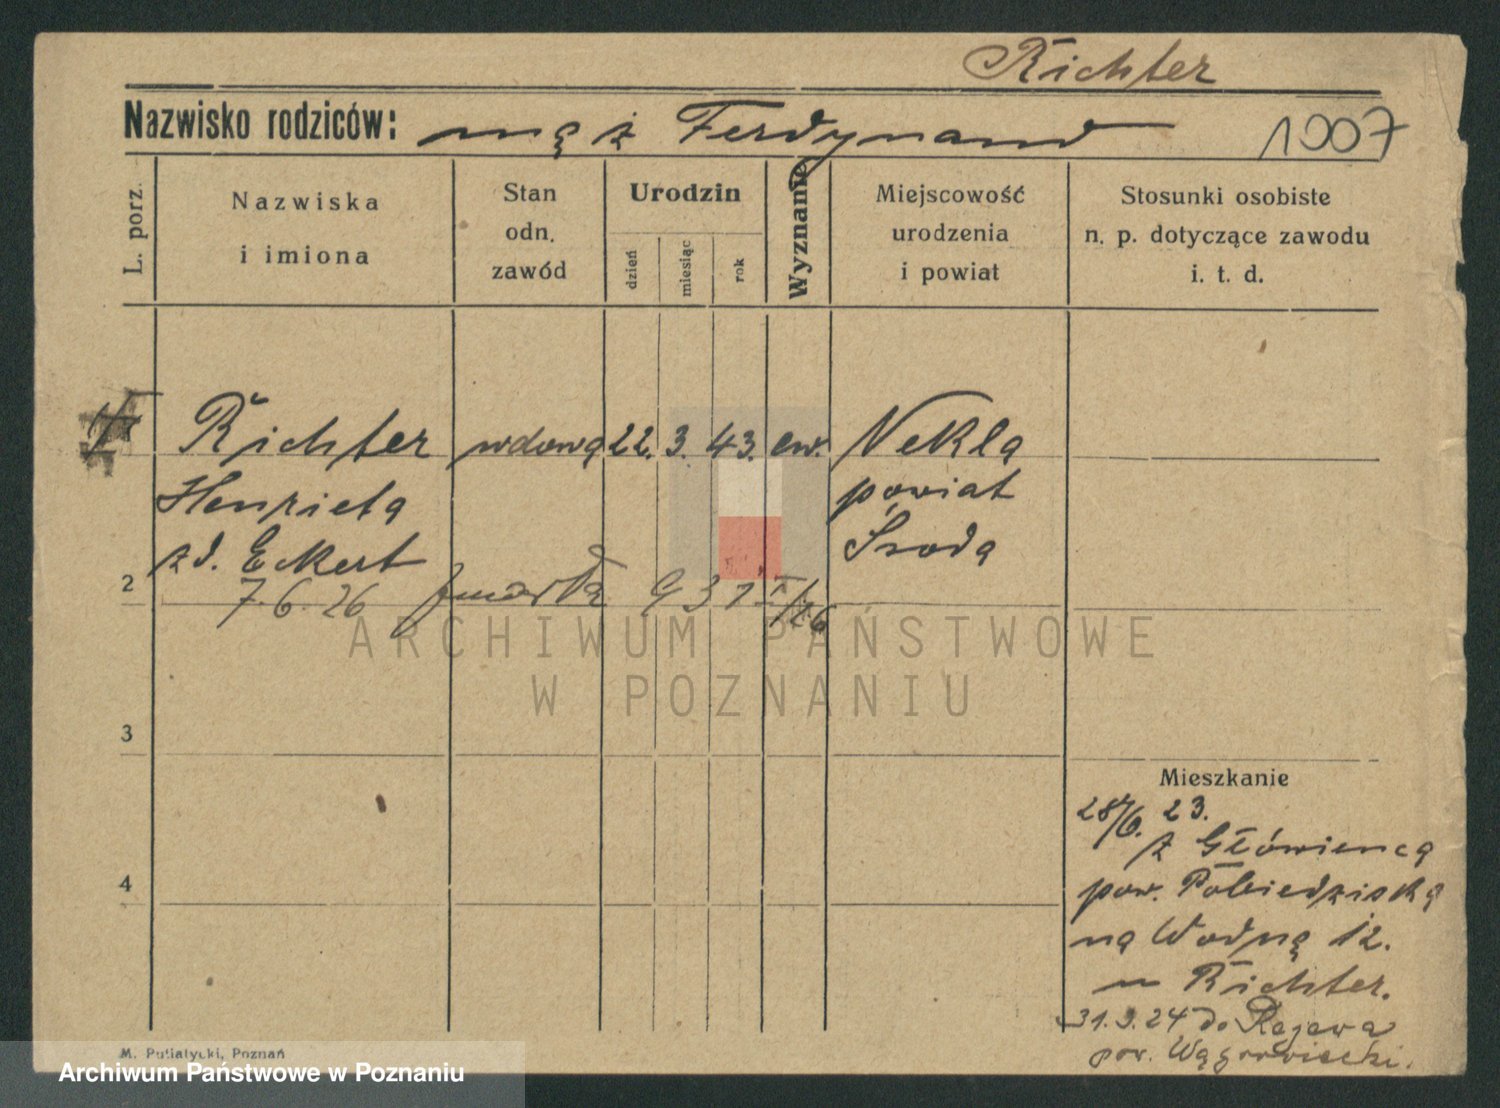 Richter
Nazwisko rodziców: mąż Ferdynand 1007
L. porz.
Nazwiska
i imiona
Stan
odn.
zawód
Urodzin
dzień
miesiąc
rok
Wyznanie
Miejscowość
urodzenia
i powiat
Stosunki osobiste
n. p. dotyczące zawodu
i. t. d.
Richter wdowa 22. 3. 43. ew. Nekla
Henrieta powiat
zd. Eckert Środa
2
7.6.26 zmarła 931 V/26
ARCHIWUM PAŃSTWOWE
W POZNANIU
3
Mieszkanie
28/6. 23.
z Główienca
pow. Pobiedziska
4
na Wodną 12.
u Richter.
31.3.24 do
pow. Wągrowiecki.
M. Putiatycki, Poznań
Archiwum Państwowe w Poznaniu